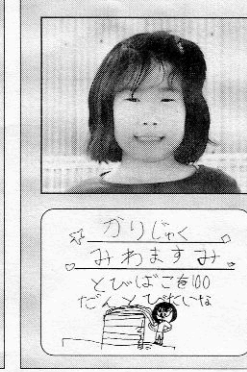 かりじゅく
みわますみ
とびばこを100
だんとびたいな